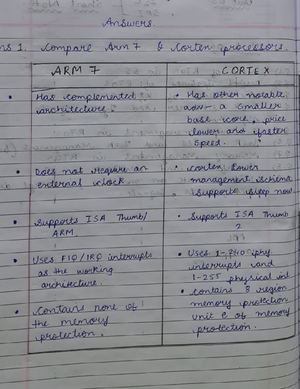 Answers
ns 1. Compare Arm 7 & Cortex processors.
ARM 7
CORTEX
• Has complemented
architecture.
• Has other notable
adv - a smaller
base core, price
lower and faster
speed.
• Does not require an
external clock.
• Cortex Power
management scheme
supports sleep now
• Supports ISA Thumb/
ARM.
• Supports ISA Thumb
2
• Uses FIQ/IRQ interrupts
as the working
architecture.
• Uses 1- phy
interrupts and
1-255 physical int
• Contains none of
the memory
protection.
• Contains 8 region
memory protection
unit & of memory
protection.